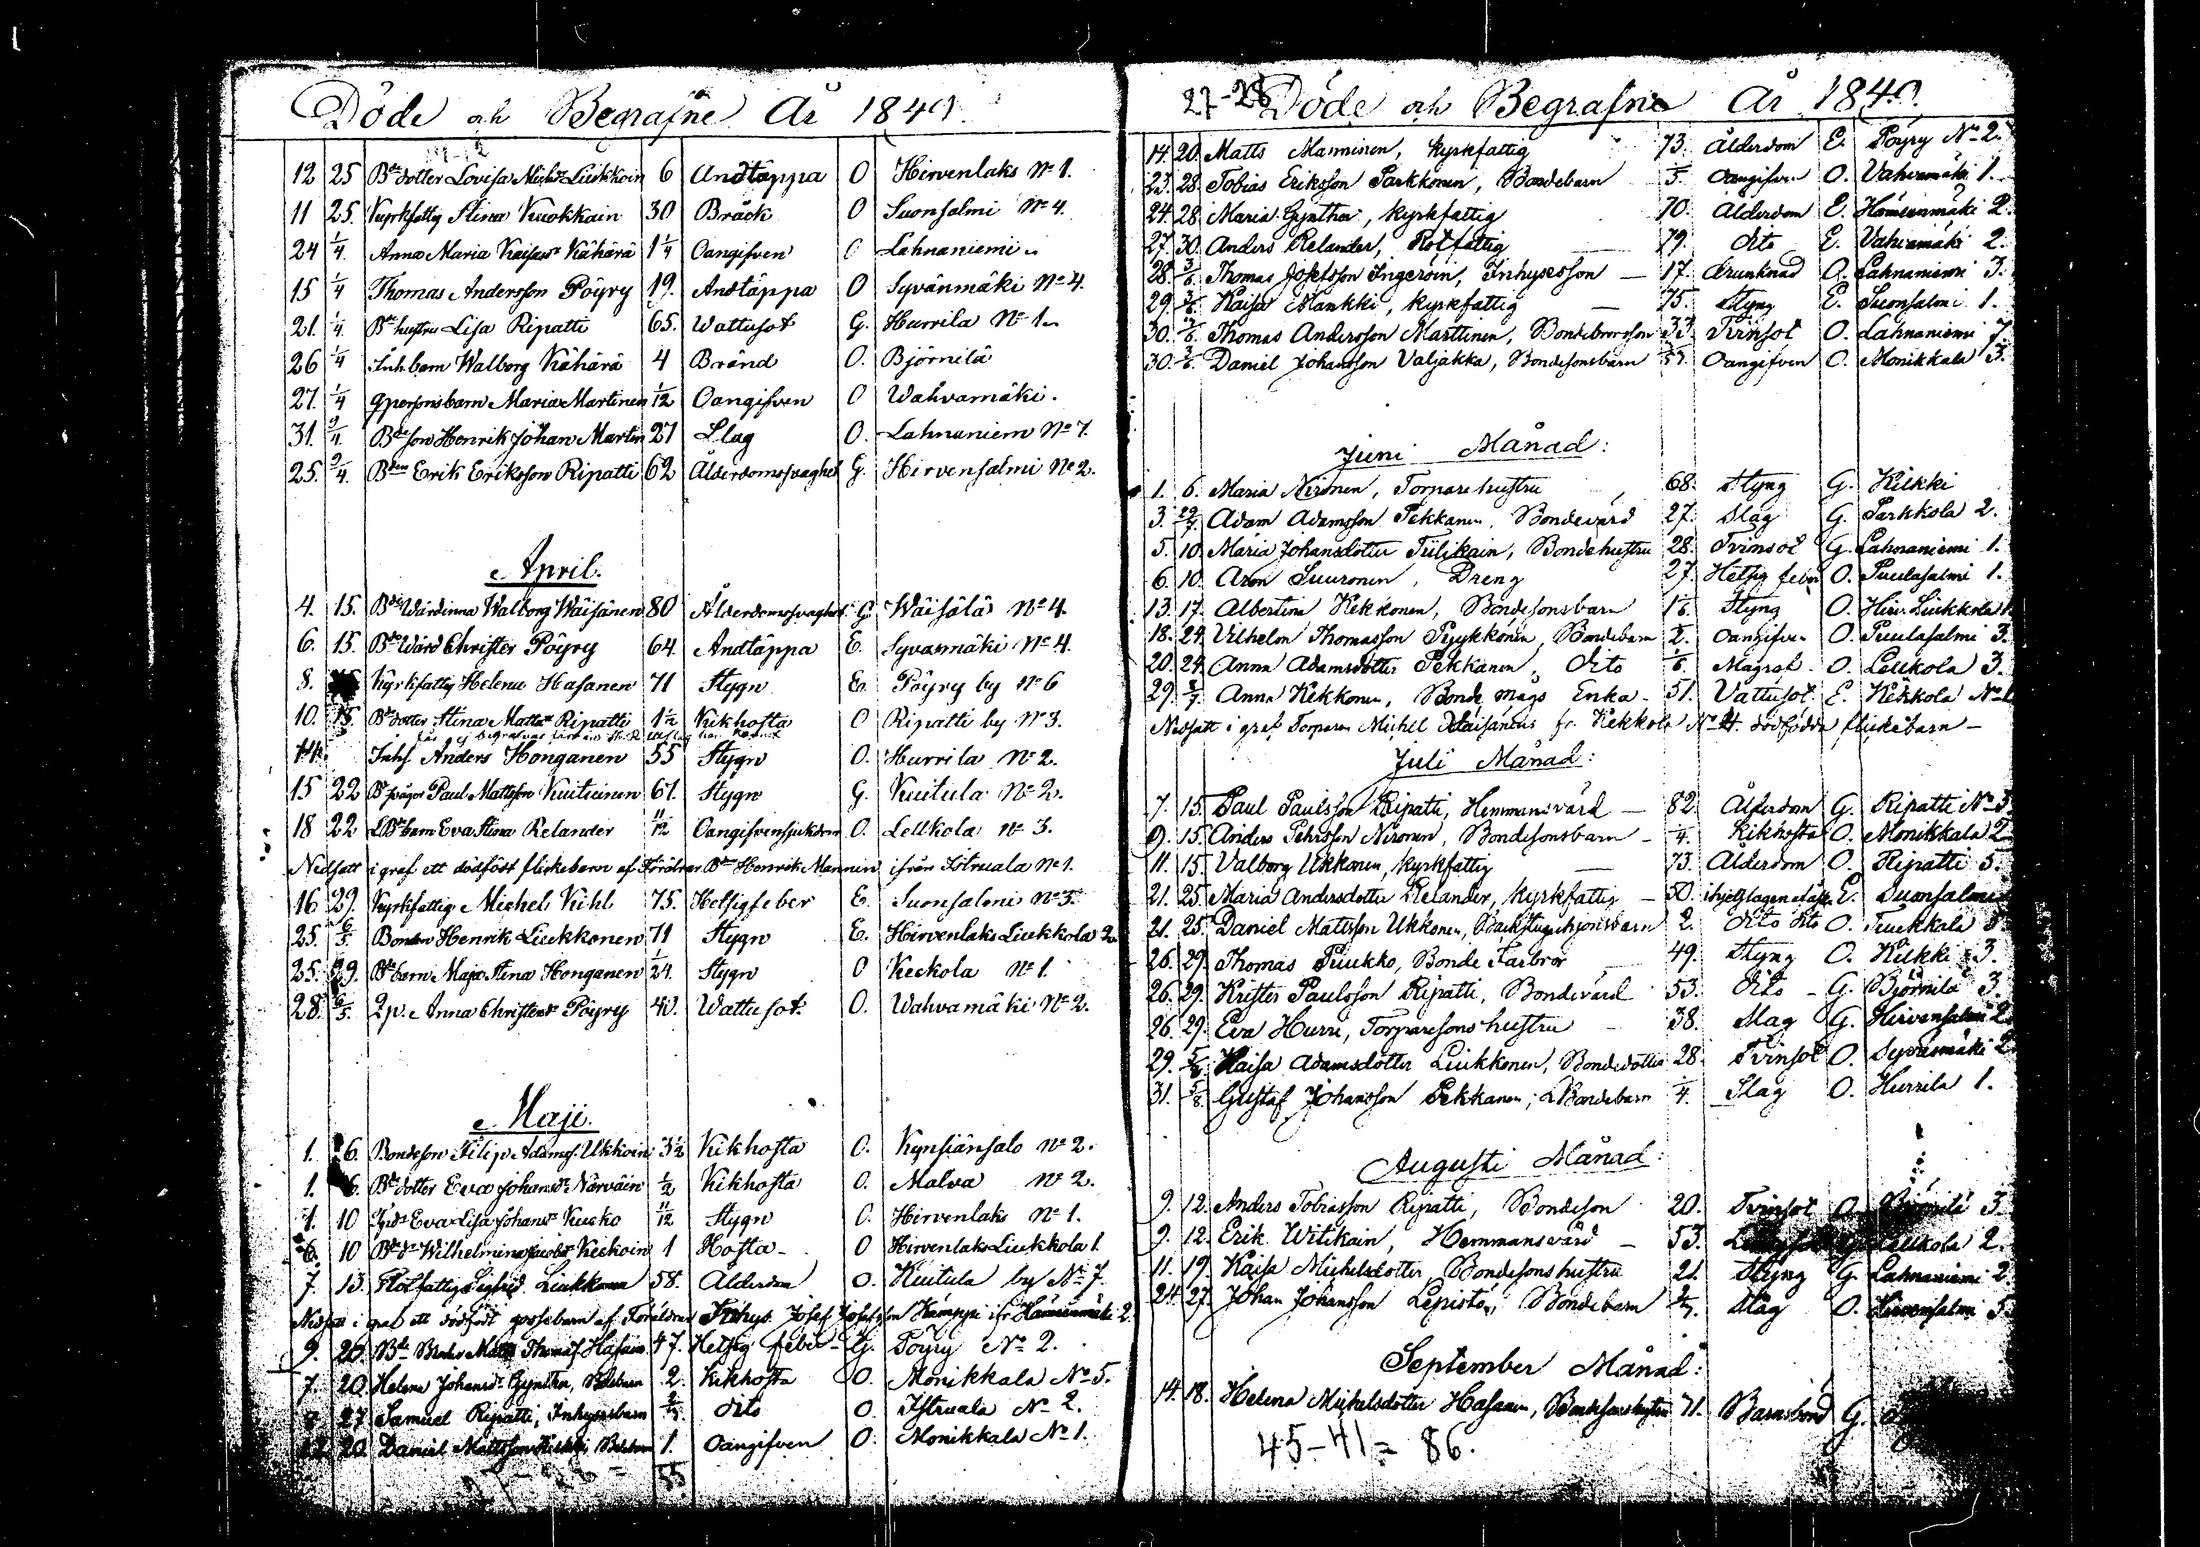 Döde och Begrafne År 1849.
12 25 Bde dotter Lovisa Michsdr Liukkoin 6 Andtäppa O Hirvenlaks No 1.
11 25. Kyrkfattig Stina Kuokkain 30 Bråck O Suonsalmi No 4.
24 1/4 Anna Maria Kaisasdr Kähärä 1 1/4 Oangifven O Lahnaniemi
15 1/4 Thomas Andersson Pöyry 19. Andtäppa O Syvänmäki No 4.
21. 1/4 Bde hustru Lisa Ripatti 65. Wattusot G. Hurrila No 1.
26 1/4 Inh. barn Walborg Kähärä 4 Bränd O. Björnilä
27. 1/4 barn Maria Martinen 1/12 Oangifven O Wahvamäki.
31. 9/4. Bde son Henrik Johan Martin 27 Slag O. Lahnaniem No 7.
25. 9/4. Bden Erik Eriksson Ripatti 62 Ålderdomssvaghet G. Hirvensalmi No 2.
April.
4. 15. Bde Wärdinna Walborg Wäisänen 80 Ålderdomssvaghet G Wäisälä No 4.
6. 15. Bde Wärd Christer Pöyry 64. Andtäppa E. Syvasmäki No 4.
8. Kyrkfattig Helena Hasanen 71 Stygn E. Pöyry by No 6
10. 15. Bde dotter Stina Mattsdr Ripatti 1 1/2 Kikhosta O Ripatti by No 3.
Inhs Anders Honganen 55 Stygn O. Hurrila No 2.
15 22 Bde svåger Paul Mattsson Kuitunen 61. Stygn G. Kuitula No 2.
18 22 barn Eva Stina Relander 11/12 Oangifvensjukdom O. Lellkola No 3.
Nedsatt i graf ett dödfödt flickebarn af Föräldrar Bde Henrik Mannin ifrån Istruala No 1.
16 29. Kyrkfattig Michel Kihl 75. Hetsigfeber E. Suonsalmi No 3.
25. 6/5. Bonden Henrik Liukkonen 71 Stygn E. Hirvenlaks Liukkola 2.
25. 29. Bde barn Maja Stina Honganen 1/24. Stygn O Keckola No 1.
28. 6/5. Anna Christersdr Pöyry 40. Wattusot. O. Wahvamäki No 2.
Maji.
1. 6. Bondeson Filip Adamss. Ukkoin 3 1/2 Kikhosta O. Kynsiänsalo No 2.
1. 6. Bde dotter Eva Johansdr Närväin 1/2 Kikhosta O. Malva No 2.
1. 10 Eva Lisa Johansdr Kusko 11/12 Stygn O. Hirvenlaks No 1.
6. 10 Bde dr Wilhelmina Jacobsdr Keckoin 1 Hosta O Hirvenlaks Liukkola 1.
7. 13. Rotfattig Sigfrid Liukkonen 58. Ålderdom O. Kuitula by No 7.
Nedsatt i graf ett dödfödt gossebarn af Föräldrar Inhys. Josef Josefsson Kämppi ifr Hämeenmäki 2.
9. 20. Bde Broder Matts Thomass. Hasain 47. Hetsig feber G. Pöyry No 2.
7. 20. Helena Johansdr Gynther, Bdebarn 2. Kikhosta O. Monikkala No 5.
8. 27 Samuel Ripatti, Inhysesbarn dito O. Istruala No 2.
20. Daniel Mattsson 1. Oangifven O. Monikkala No 1.
55.
27-28 Döde och Begrafne År 1849.
14. 20. Matts Manninen, kyrkfattig 73. Ålderdom E. Pöyry No 2.
23. 28. Tobias Eriksson Parkkonen, Bondebarn Oangifven O. Vahvamäki 1.
24. 28. Maria Gynther, kyrkfattig 70. Ålderdom E. Hämeenmäki 2.
27. 30. Anders Relander, Rotfattig 79. dito E. Vahvamäki 2.
28. 3/6. Thomas Josefsson Ingeröin, Inhysesson 17. drunknad O. Lahnaniemi 3.
29. 3/6. Kaisa Mankki, kyrkfattig 75. Styng E. Suonsalmi 1.
30. 3/6. Thomas Andersson Marttinen, Bondebrorsson 33. Tvinsot O. Lahnaniemi 7.
30. 3/6. Daniel Johansson Valjakka, Bondesonsbarn Oangifven O. Monikkala 3.
Juni Månad:
1. 6. Maria Nironen, Torpare hustru 68. Styng G. Kilkki
3. 29/7. Adam Adamsson Pekkanen, Bondevärd 27. Slag G. Parkkola 2.
5. 10. Maria Johansdotter Tiilikain, Bondehustru 28. Tvinsot G. Lahnaniemi 1.
6. 10. Aron Suuronen, Dreng 27. Hetsig feber O. Puulasalmi 1.
13. 17. Albertina Kekkonen, Bondesonsbarn 1/6. Styng O. Hirv. Liukkola 1.
18. 24. Vilhelm Thomasson Pyykkönen, Bondebarn 1/2. Oangifven O. Puulasalmi 3.
20. 24. Anna Adamsdotter Pekkanen, dito 1/6. Magref O. Leukola 3.
29. 8/7. Anna Kekkonen, Bonde mågs Enka 51. Vattusot E. Kekkola No 1.
Nedsatt i graf Torparen Michel Väisänens fr. Kekkola No 4. dödfödda flickebarn —
Juli Månad:
7. 15. Paul Paulsson Ripatti, Hemmansvärd 82. Ålderdom G. Ripatti No 3.
9. 15. Anders Pehrsson Nironen, Bondesonsbarn 1/4. Kikhosta O. Monikkala 2.
11. 15. Valborg Ukkonen, kyrkfattig 73. Ålderdom O. Ripatti 5.
21. 25. Maria Andersdotter Relander, kyrkfattig 50. ihjelslagen af åska E. Suonsalmi
21. 25. Daniel Mattsson Ukkonen, 2. dito dito O. Tuukkala
26. 29. Thomas Puukko, Bonde Farbror 49. Styng O. Kilkki 3.
26. 29. Krister Paulsson Ripatti, Bondevärd 53. dito G. Björnilä 3.
26. 29. Eva Hurri, Torparesons hustru 38. Slag G. Hirvensalmi 2.
29. 5/8. Kaisa Adamsdotter Liukkonen, Bondedotter 28. Tvinsot O. Syväsmäki 2.
31. 5/8. Gustaf Johansson Pekkanen, Bondebarn 1/4. Slag O. Hurrila 1.
Augusti Månad:
9. 12. Anders Tobiasson Ripatti, Bondeson 20. Tvinsot O. Björnilä 3.
9. 12. Erik Witikain, Hemmansvärd 53. Lellkola 2.
11. 19. Kaisa Michelsdotter, Bondesonshustru 21. Styng G. Lahnaniemi 2.
24. 27. Johan Johansson Lepistö, Bondebarn Slag O. Hirvensalmi 5.
September Månad:
14. 18. Helena Michelsdotter Hasanen, Bondesonshustru 71. Barnsbörd G.
45-41 = 86.